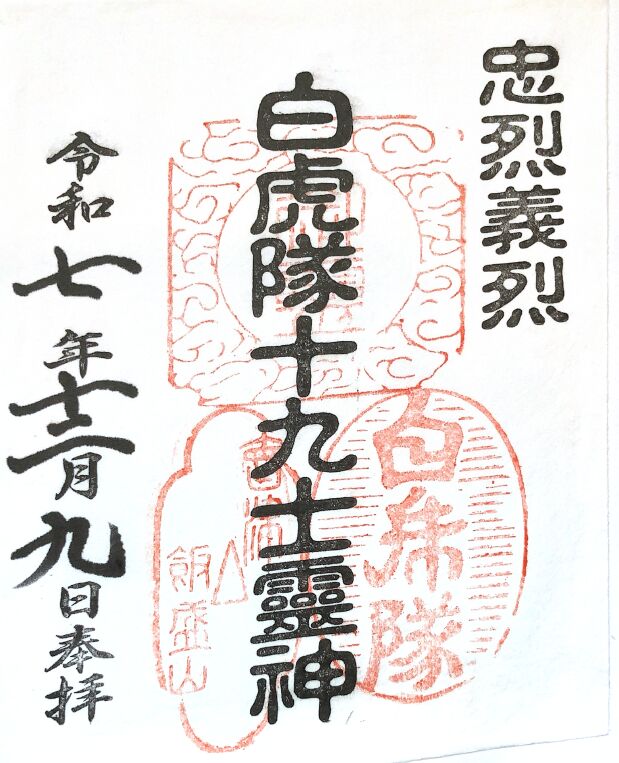 忠烈義烈
白虎隊十九士靈神
白虎隊
飯盛山
令和七年十二月九日奉拝